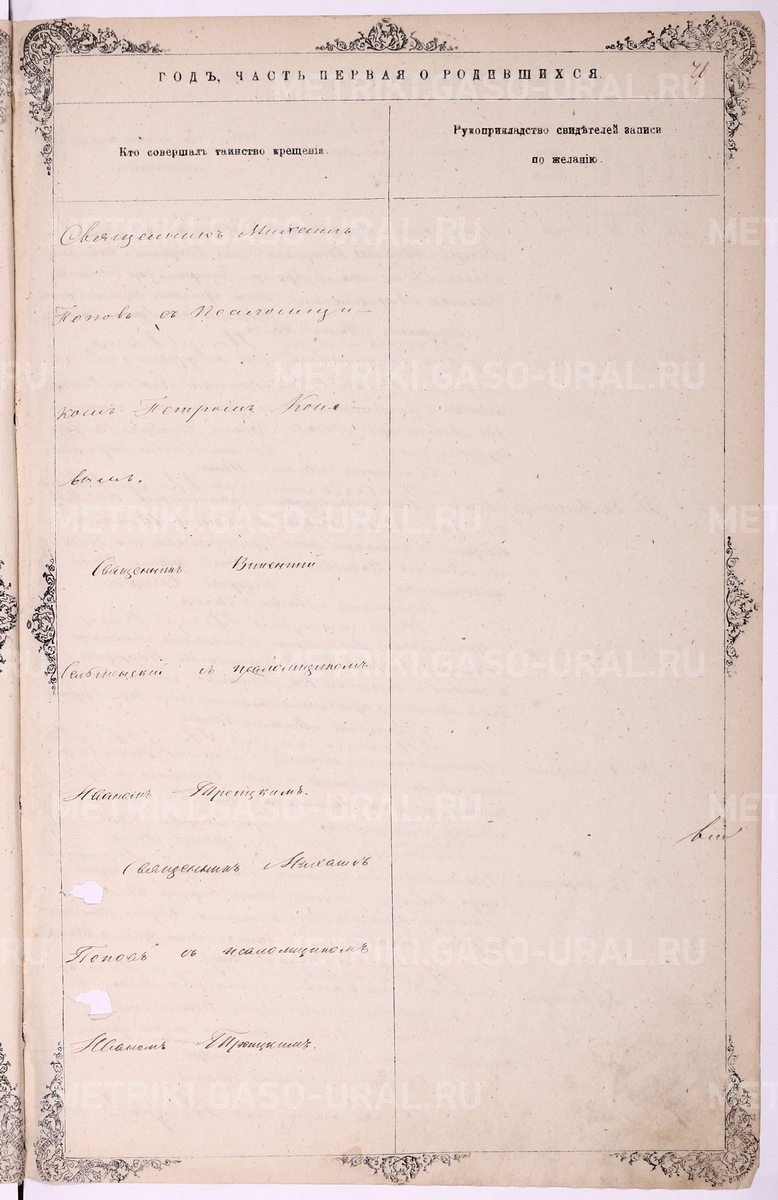 ГОДЪ, ЧАСТЬ ПЕРВАЯ О РОДИВШИХСЯ.
Кто совершалъ таинство крещенія.
Рукоприкладство свидѣтелей записи
по желанію.
Священникъ Михаилъ
Поповъ съ Псаломщи-
комъ Петромъ Коно
валъ.
Священникъ Викентій
съ псаломщикомъ
Иваномъ Троицкимъ.
Священникъ Михаилъ
Поповъ съ псаломщикомъ
Иваномъ Троицкимъ.
METRIKI.GASO-URAL.RU